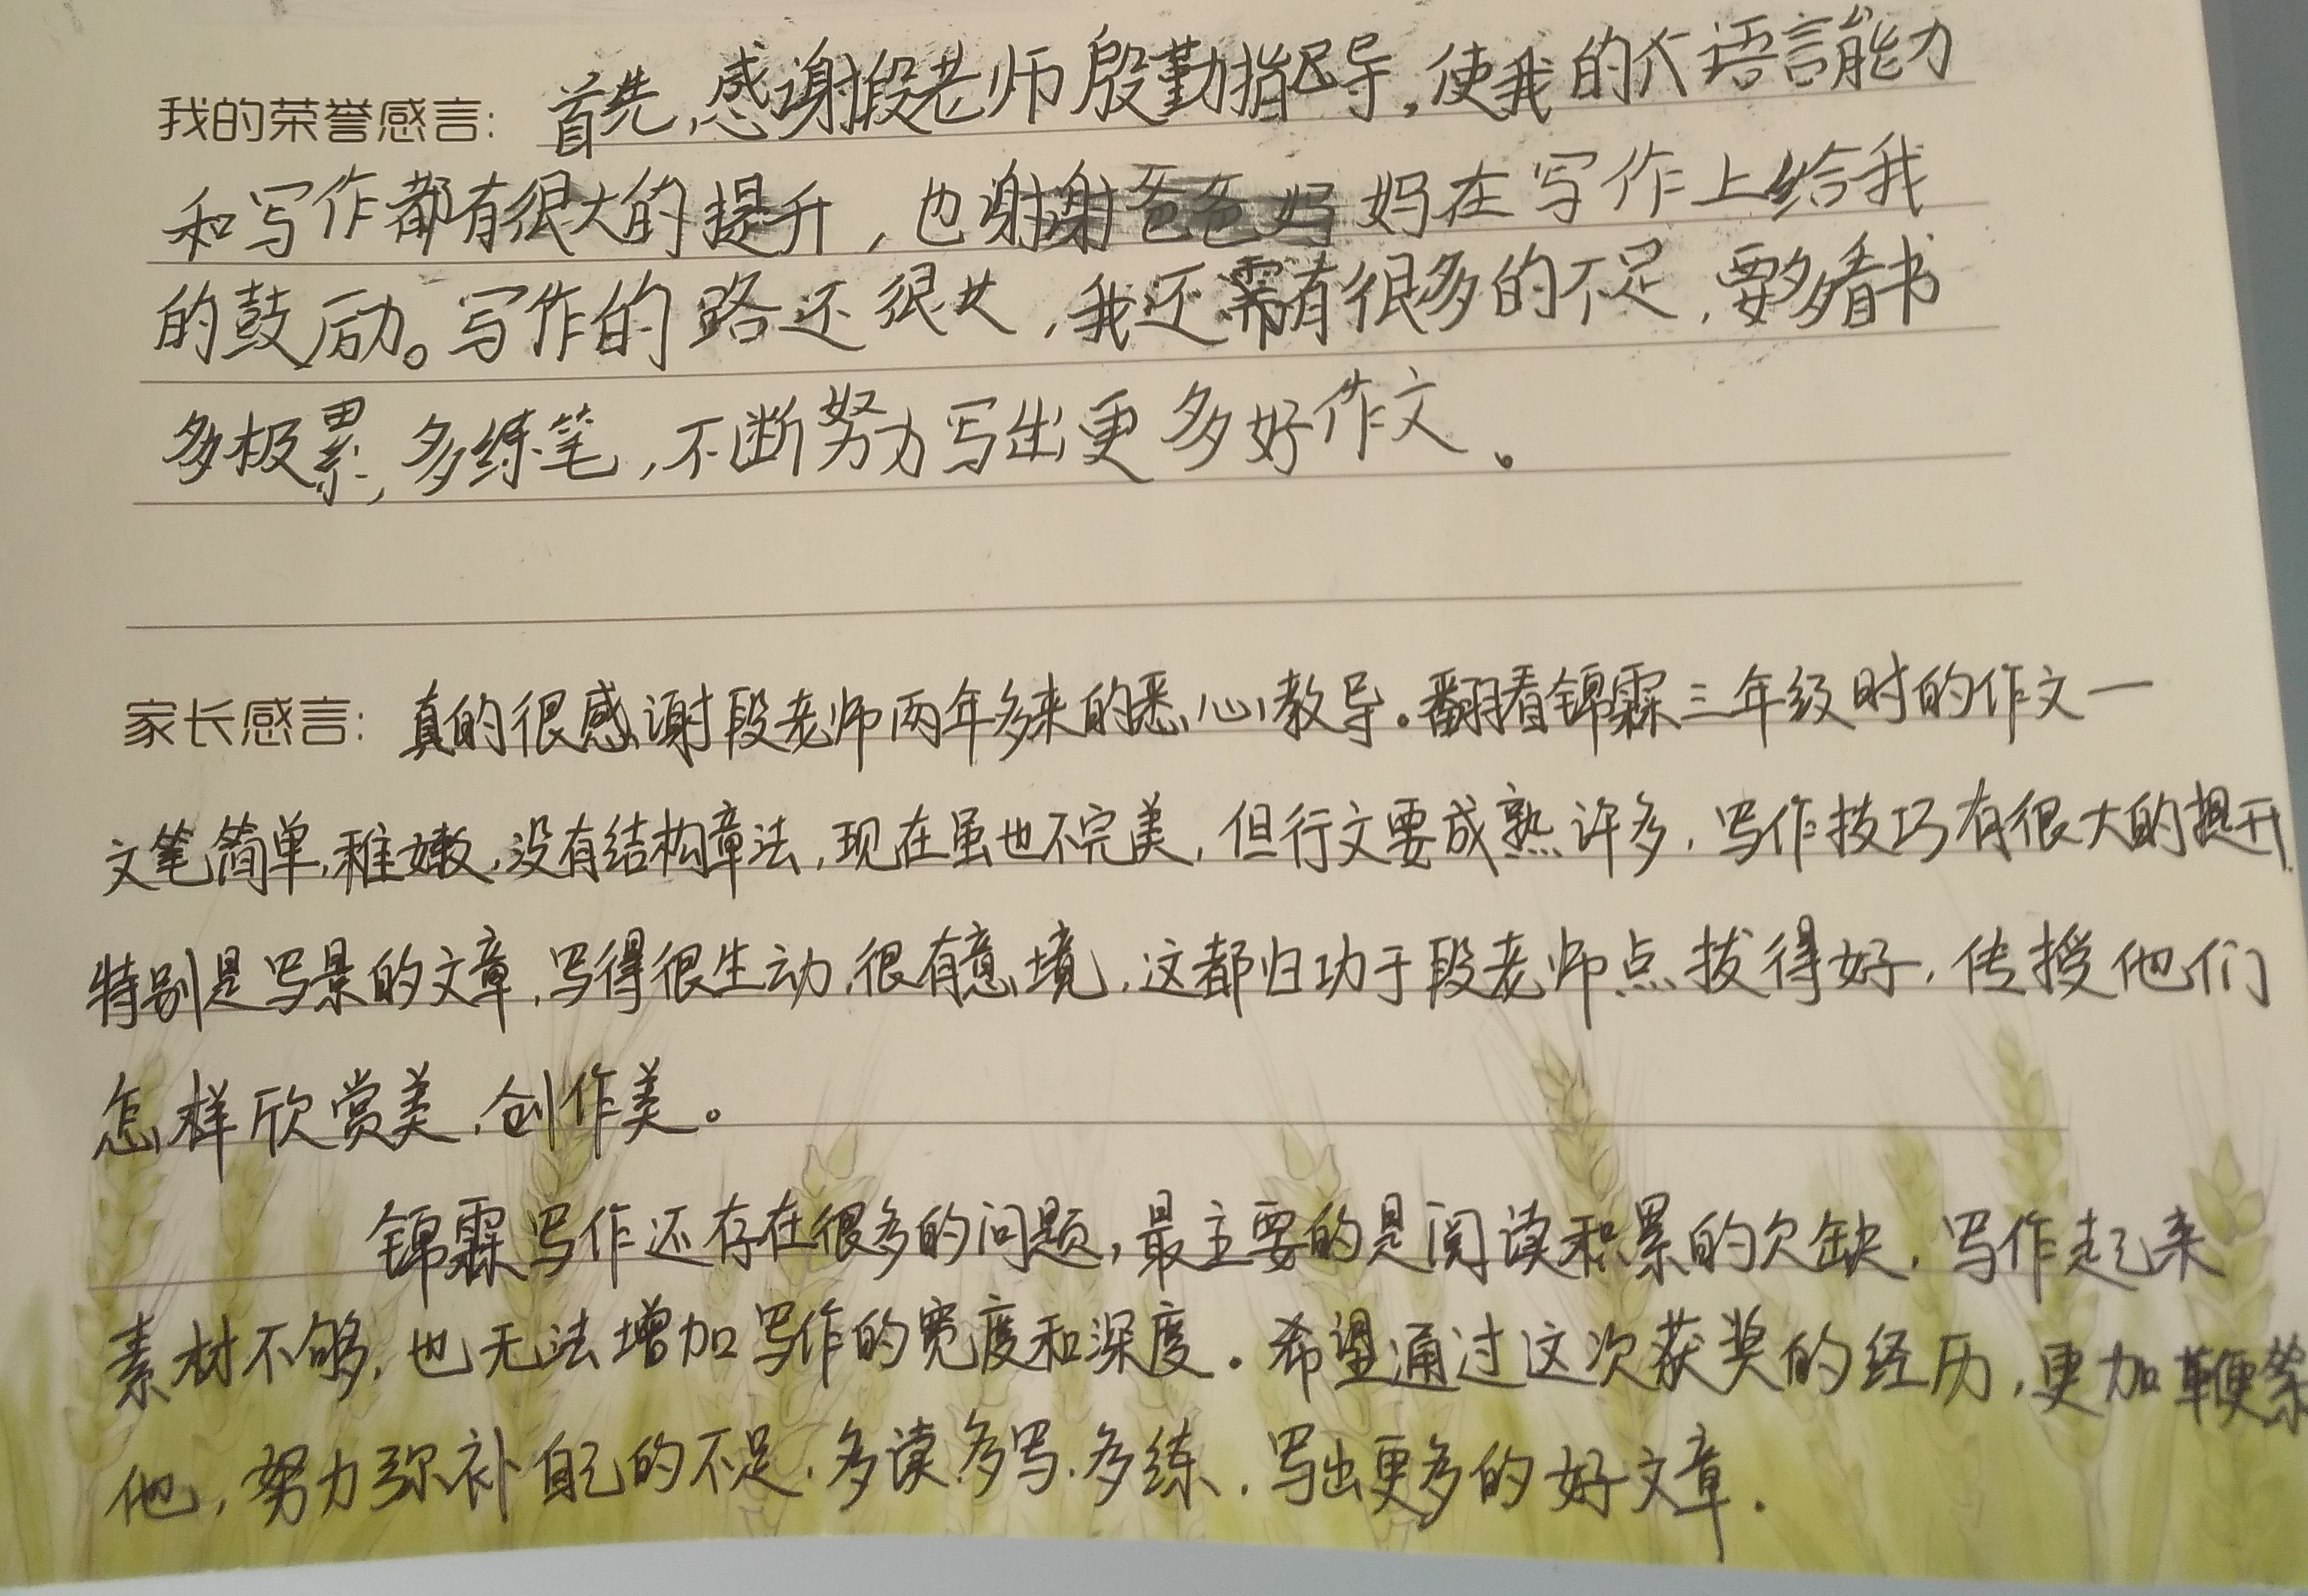 我的荣誉感言: 首先,感谢段老师殷勤指导,使我的语言能力
和写作都有很大的提升,也谢谢爸爸妈妈在写作上给我
的鼓励。写作的路还很长,我还有很多的不足,要多看书
多极累,多练笔,不断努力写出更多好作文。
家长感言: 真的很感谢段老师两年多来的悉心教导。翻看锦霖三年级时的作文一
文笔简单,稚嫩,没有结构章法,现在虽也不完美,但行文要成熟许多,写作技巧有很大的提升.
特别是写景的文章,写得很生动,很有意境,这都归功于段老师点拨得好,传授他们
怎样欣赏美,创作美。
锦霖写作还存在很多的问题,最主要的是阅读积累的欠缺,写作起来
素材不够,也无法增加写作的宽度和深度。希望通过这次获奖的经历,更加鞭策
他,努力弥补自己的不足,多读,多写,多练,写出更多的好文章.